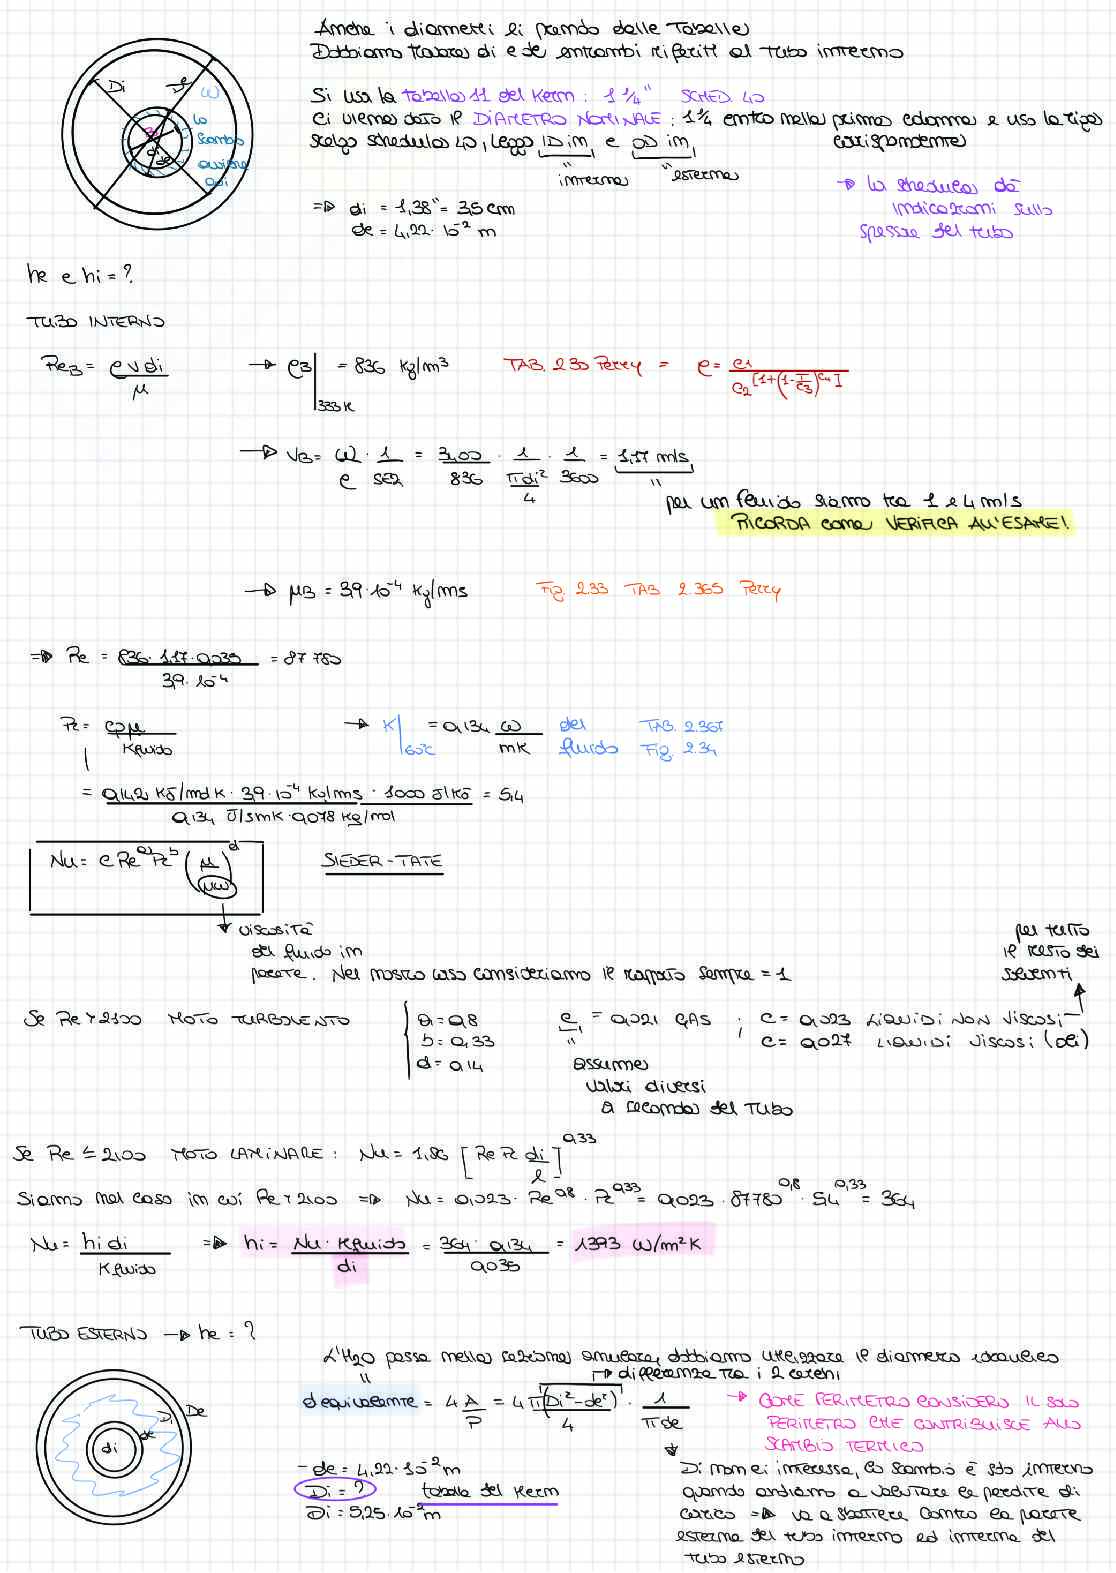 Anche i diametri li prendo dalle Tabelle
Dobbiamo trovare di e de entrambi riferiti al tubo interno
Di
W
lo
scambio
avviene
qui
di
de
Si usa la Tabella 11 del Kern: 1 1/4" SCHED. 40
Ci viene dato il DIAMETRO NOMINALE: 1 1/4 entro nella prima colonna e uso la riga corrispondente
scelgo schedula 40, leggo ID in e OD in
" interno " esterno
→ la schedula dà
indicazioni sullo
spessore del tubo
=> di = 1,38" = 3,5 cm
de = 4,22·10⁻² m
he e hi = ?
TUBO INTERNO
Re_B = ρ v di / μ → ρ_B |333K = 836 Kg/m³ TAB. 2.30 Perry = ρ = C1 / C2^[1+(1-T/C3)^C4]
→ v_B = W/ρ · 1/SEZ = 3400/836 · 1/(πdi²/4) · 1/3600 = 1,17 m/s
"
per un fluido siamo tra 1 e 4 m/s
RICORDA come VERIFICA ALL'ESAME!
→ μ_B = 3,9·10⁻⁴ Kg/ms Fig. 2.33 TAB 2.365 Perry
=> Re = 836·1,17·0,035 / 3,9·10⁻⁴ = 87 780
Pr = cp μ / Kfluido → K |60°C = 0,134 W/mK del fluido TAB. 2.367 Fig. 2.34
= 0,142 KJ/mol K · 3,9·10⁻⁴ Kg/ms · 1000 J/KJ / 0,134 J/smK · 0,078 Kg/mol = 5,4
Nu = C Re^a Pr^b (μ/μw)^d SIEDER-TATE
→ viscosità
del fluido in
parete. Nel nostro caso consideriamo il rapporto sempre = 1
per tutto
il resto dei
solventi
Se Re > 2100 MOTO TURBOLENTO a = 0,8 C = 0,021 GAS ; C = 0,023 LIQUIDI NON VISCOSI
b = 0,33 " C = 0,027 LIQUIDI VISCOSI (oli)
d = 0,14 assume
valori diversi
a seconda del TUBO
Se Re ≤ 2100 MOTO LAMINARE: Nu = 1,86 [Re Pr di/l]^0,33
Siamo nel caso in cui Re > 2100 => Nu = 0,023 · Re^0,8 · Pr^0,33 = 0,023 · 87780^0,8 · 5,4^0,33 = 364
Nu = hi di / Kfluido => hi = Nu · Kfluido / di = 364 · 0,134 / 0,035 = 1393 W/m²K
TUBO ESTERNO → he = ?
L'H2O passa nella sezione anulare, dobbiamo utilizzare il diametro idraulico
" → differenza tra i 2 cerchi
d equivalente = 4 A/P = 4 π(Di²-de²)/4 · 1/πde → COME PERIMETRO CONSIDERO IL SOLO
PERIMETRO CHE CONTRIBUISCE ALLO
SCAMBIO TERMICO
Di
De
de
di
- de = 4,22·10⁻² m
Di = ? tabella del Kern
Di = 5,25·10⁻² m
Di non ci interessa, lo scambio è solo interno
quando andiamo a valutare le perdite di
carico => va a sbattere contro la parete
esterna del tubo interno ed interna del
tubo esterno